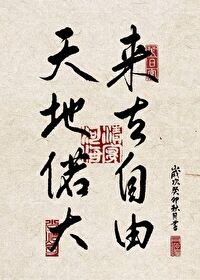 来去自由
天地偌大
岁次癸卯秋月书